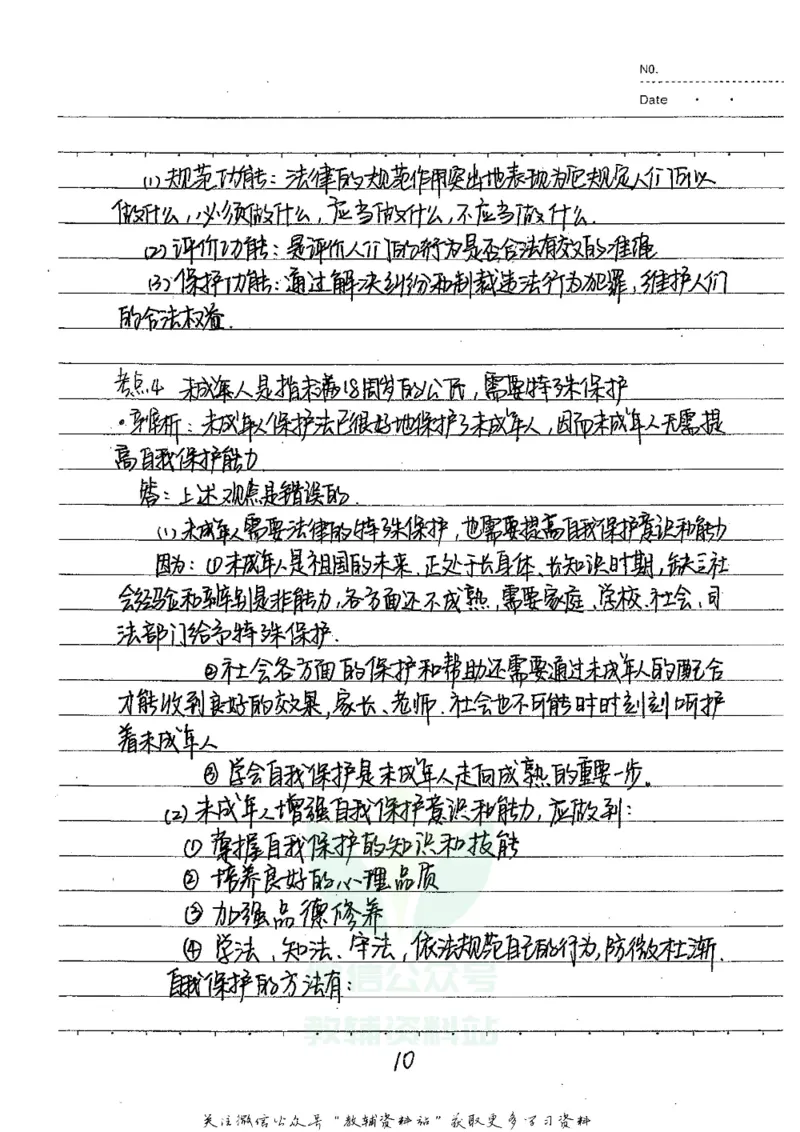 NO.
Date
(1)规范功能:法律的规范作用突出地表现为它规定人们可以
做什么,必须做什么,应当做什么,不应当做什么.
(2)评价功能:是评价人们的行为是否合法有效的准绳
(3)保护功能:通过解决纠纷和制裁违法行为犯罪,维护人们
的合法权益.
考点4 未成年人是指未满18周岁的公民,需要特殊保护
·辨析:未成年人保护法已很好地保护了未成年人,因而未成年人无需提
高自我保护能力
答:上述观点是错误的.
(1)未成年人需要法律的特殊保护,也需要提高自我保护意识和能力
因为:①未成年人是祖国的未来,正处于长身体、长知识时期,缺乏社
会经验和辨别是非能力,各方面还不成熟,需要家庭、学校、社会、司
法部门给予特殊保护.
②社会各方面的保护和帮助还需要通过未成年人的配合
才能收到良好的效果,家长、老师、社会也不可能时时刻刻呵护
着未成年人
③学会自我保护是未成年人走向成熟的重要一步。
(2)未成年人增强自我保护意识和能力,应做到:
①掌握自我保护的知识和技能
②培养良好的心理品质
③加强品德修养
④学法、知法、守法,依法规范自己的行为,防微杜渐.
自我保护的方法有:
微信公众号
教辅资料站
10
关注微信公众号"教辅资料站"获取更多学习资料